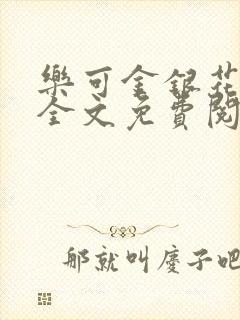 樂可金銀花
全文免費閱
那就叫慶子吧